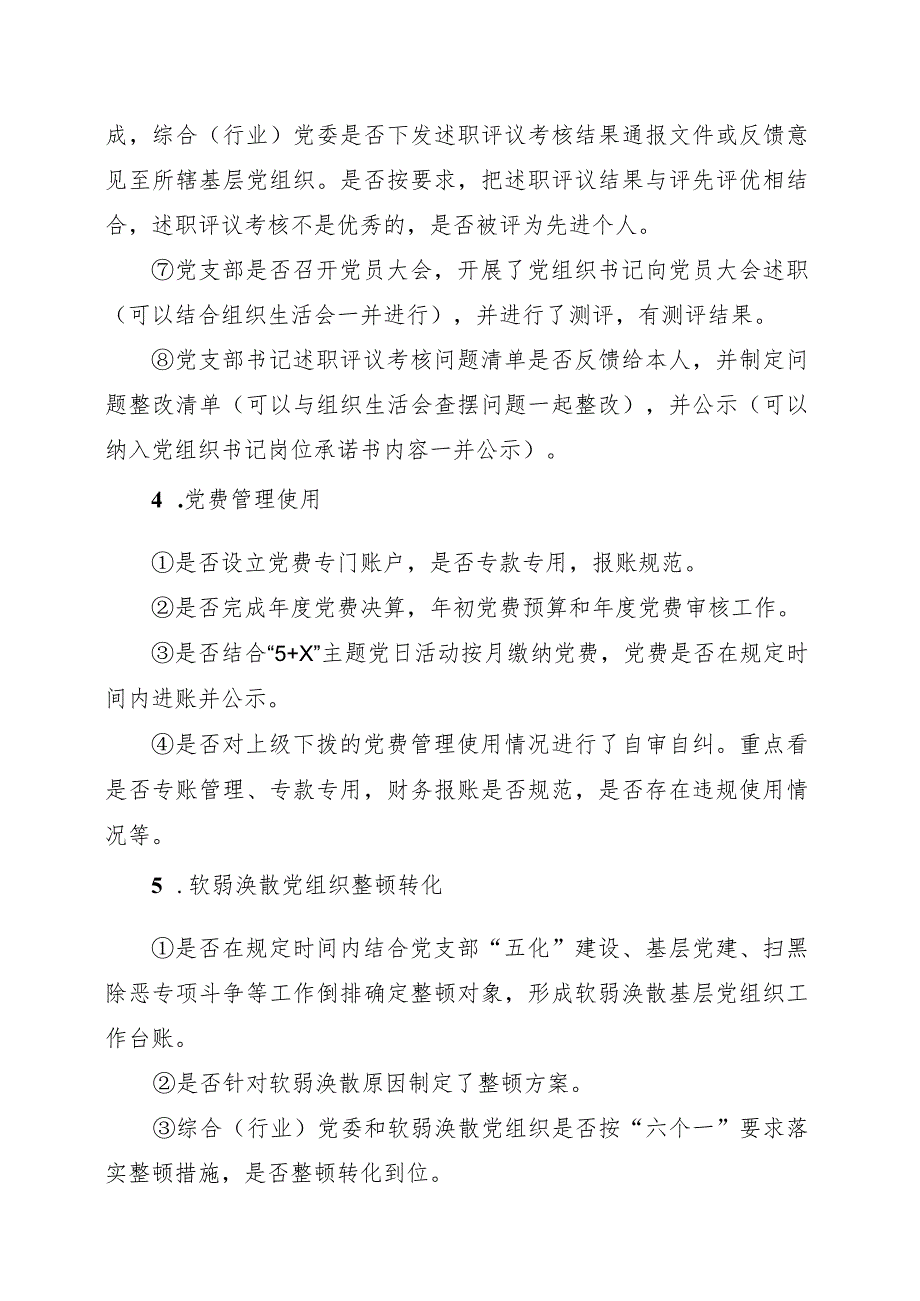 成，综合（行业）党委是否下发述职评议考核结果通报文件或反馈意
见至所辖基层党组织。是否按要求，把述职评议结果与评先评优相结
合，述职评议考核不是优秀的，是否被评为先进个人。
⑦党支部是否召开党员大会，开展了党组织书记向党员大会述职
（可以结合组织生活会一并进行），并进行了测评，有测评结果。
⑧党支部书记述职评议考核问题清单是否反馈给本人，并制定问
题整改清单（可以与组织生活会查摆问题一起整改），并公示（可以
纳入党组织书记岗位承诺书内容一并公示）。
4 .党费管理使用
①是否设立党费专门账户，是否专款专用，报账规范。
②是否完成年度党费决算，年初党费预算和年度党费审核工作。
③是否结合“5+X”主题党日活动按月缴纳党费，党费是否在规定时
间内进账并公示。
④是否对上级下拨的党费管理使用情况进行了自审自纠。重点看
是否专账管理、专款专用，财务报账是否规范，是否存在违规使用情
况等。
5 . 软弱涣散党组织整顿转化
①是否在规定时间内结合党支部“五化”建设、基层党建、扫黑
除恶专项斗争等工作倒排确定整顿对象，形成软弱涣散基层党组织工
作台账。
②是否针对软弱涣散原因制定了整顿方案。
③综合（行业）党委和软弱涣散党组织是否按“六个一”要求落
实整顿措施，是否整顿转化到位。